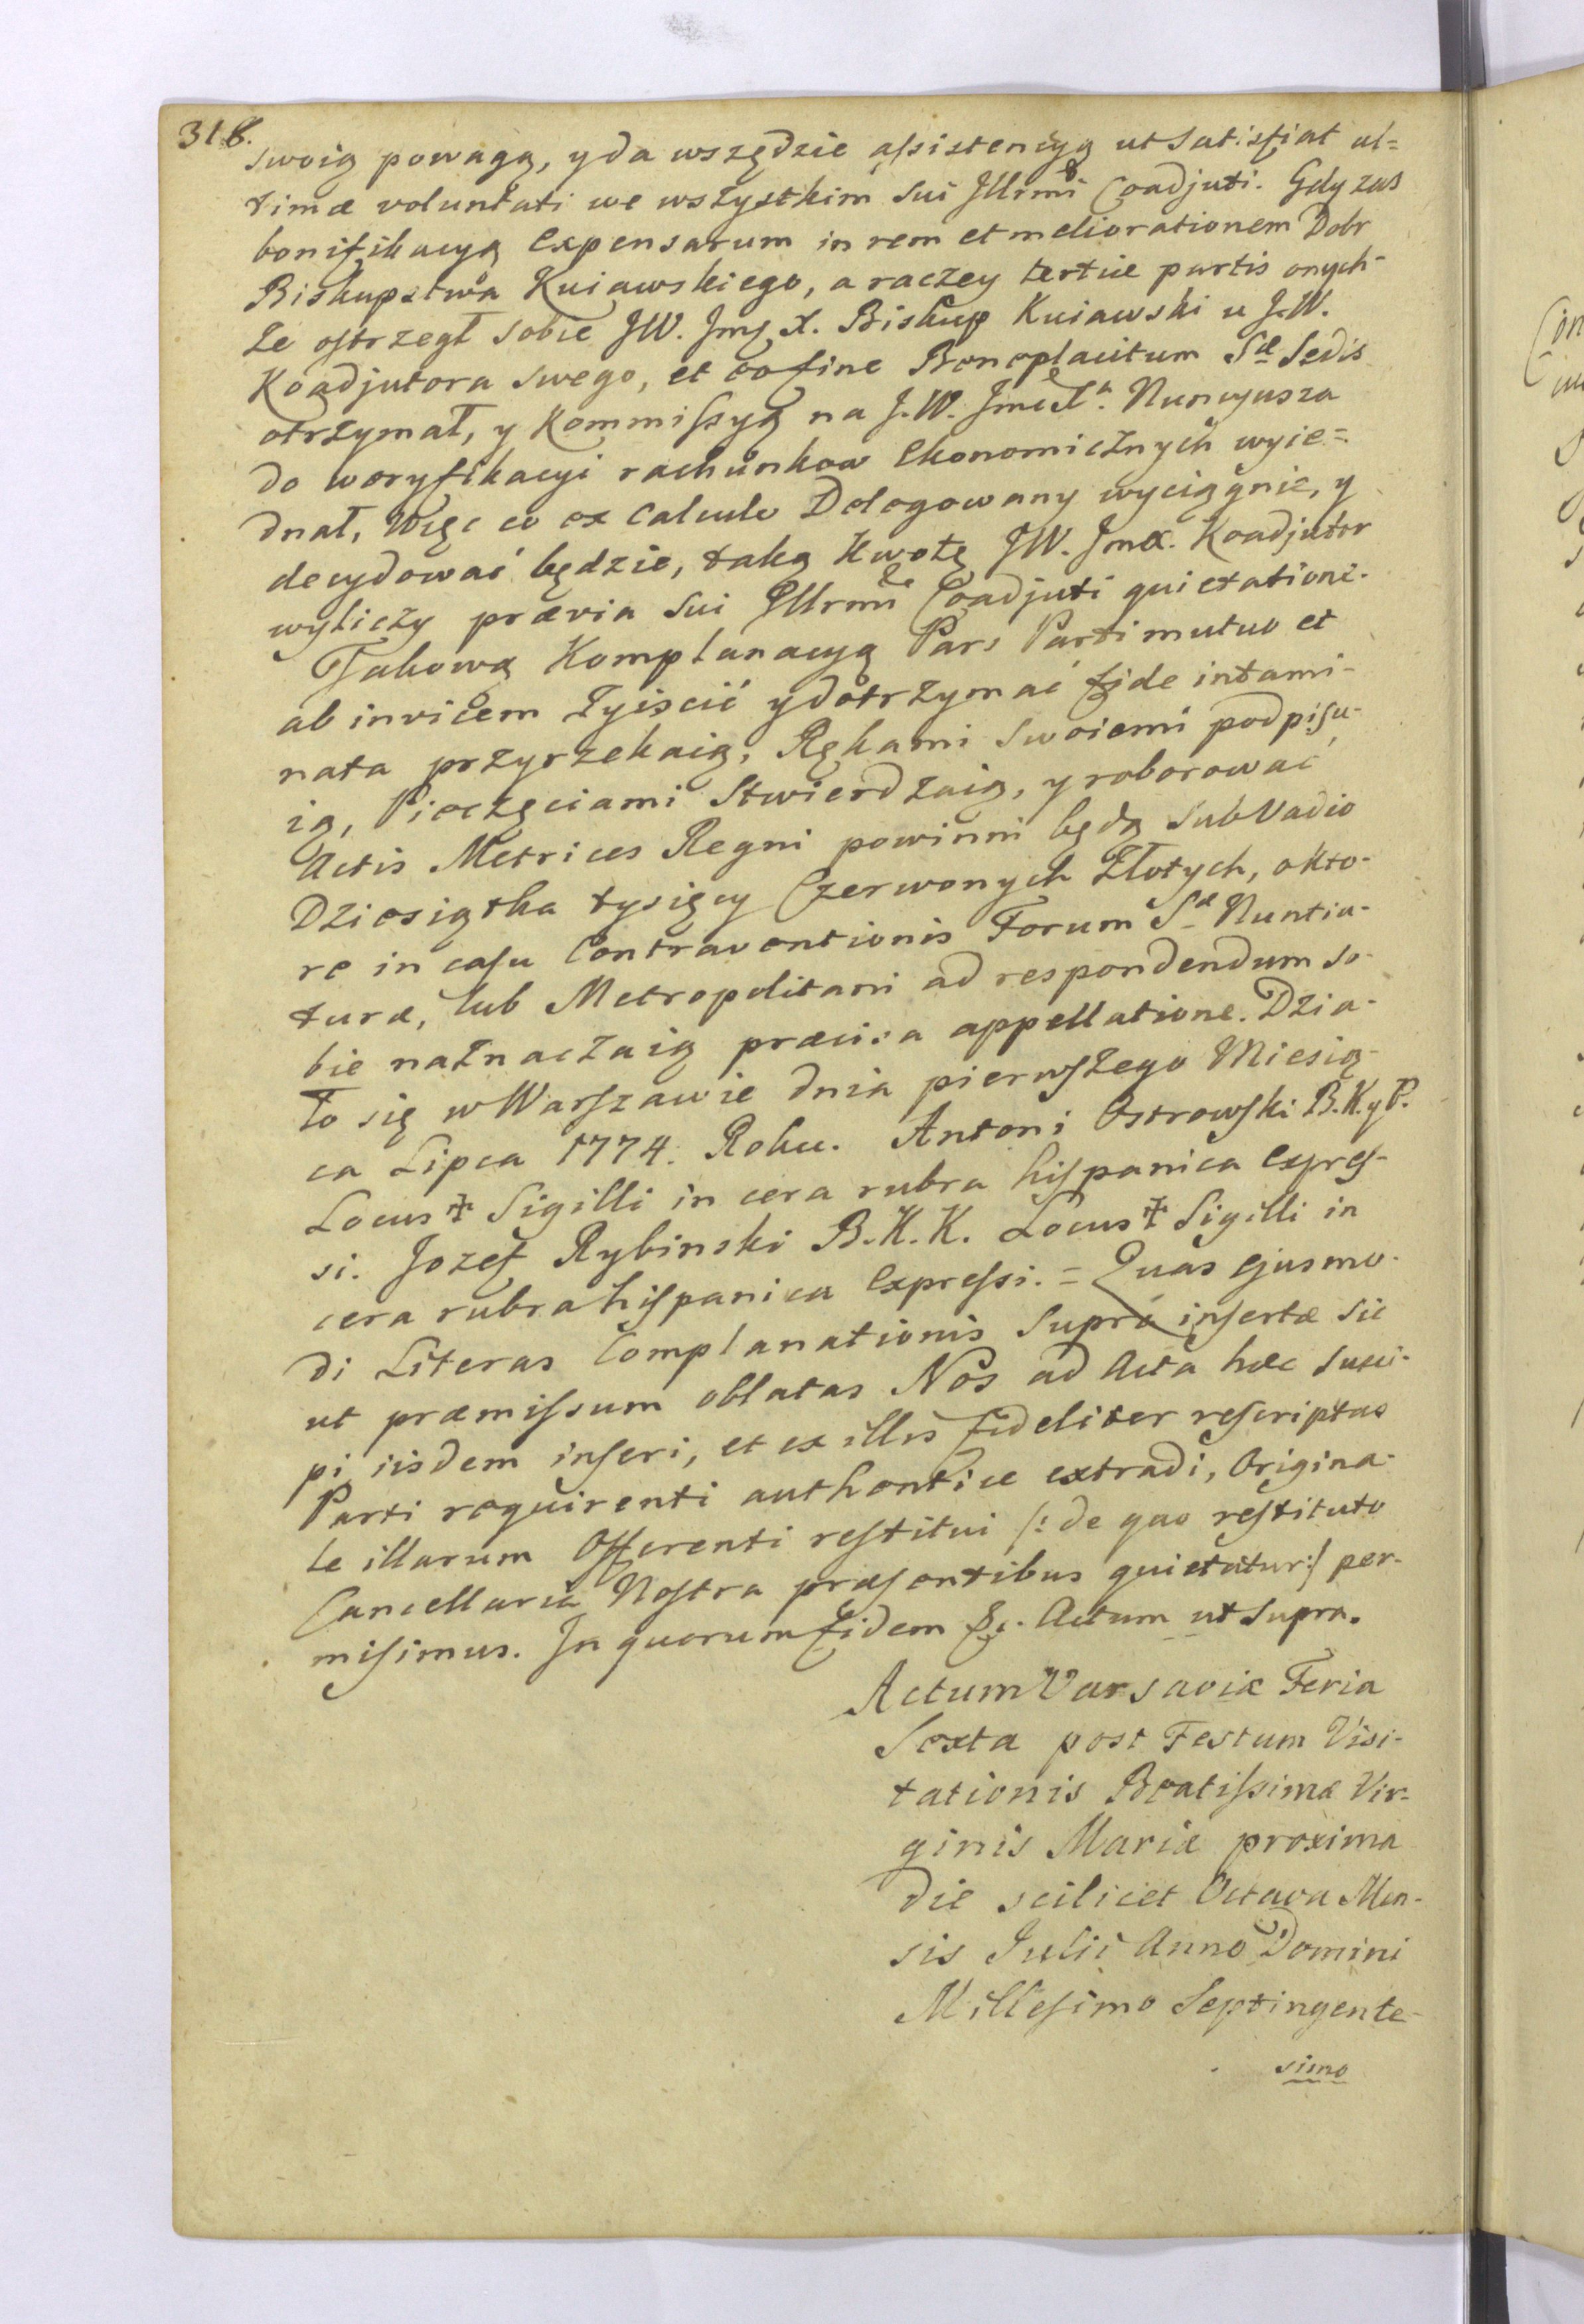 318.
swoią powagą, y da wszędzie assistencyą ut satisfiat ul=
timæ voluntati we wszystkim sui Illrmi Coadjuti. Gdy zas
bonifikacyą expensarum in rem et meliorationem Dobr
Biskupstwa Kuiawskiego, a raczey tertiæ partis onych-
że ostrzegł sobie JW. Jmć X. Biskup Kuiawski u J.W.
Koadjutora swego, et eo fine Beneplacitum Sæ Sedis
otrzymał, y Kommissyą na J.W. Jmć Xa. Nuncyusza
do weryfikacyi rachunkow Ekonomicznych wyie=
dnał, Więc co ex Calculo Delegowany wyciągnie, y
decydować będzie, taką Kwotę JW. JmX. Koadjutor
wyliczy prævia sui Illrmi Coadjuti quietatione.
Takową Komplanacyą Pars Parti mutuo et
ab invicem zyiscić y dotrzymać fide intami-
nata przyrzekaią, Rękami swoiemi podpisu-
ią, Pieczęciami stwierdzaią, y roborować
Actis Metrices Regni powinni będą sub Vadio
Dziesiątka tysięcy Czerwonych Złotych, o kto-
re in casu Contraventionis Forum Sæ Nuntia-
turæ, lub Metropolitani ad respondendum so-
bie naznaczaią præcisa appellatione. Dzia-
ło się w Warszawie dnia pierwszego Miesią-
ca Lipca 1774. Roku. Antoni Ostrowski B.K.y P.
Locus ‡ Sigilli in cera rubra hispanica expres-
si. Jozef Rybinski B.K.K. Locus ‡ Sigilli in
cera rubra hispanica Expressi. = Quas ejusmo-
di Literas Complanationis supra insertæ sic
ut præmissum oblatas Nos ad Acta hæc susci-
pi iisdem inseri, et ex illis fideliter rescriptas
Parti requirenti authentice extradi, Origina-
le illarum Offerenti restitui /: de quo restituto
Cancellaria Nostra præsentibus quietatur :/ per-
misimus. In quorum fidem &c. Actum ut supra.
Actum Varsaviæ Feria
Sexta post Festum Visi-
tationis Beatissimæ Vir-
ginis Mariæ proxima
die scilicet Octava Men-
sis Julii Anno Domini
Millesimo Septingente-
simo